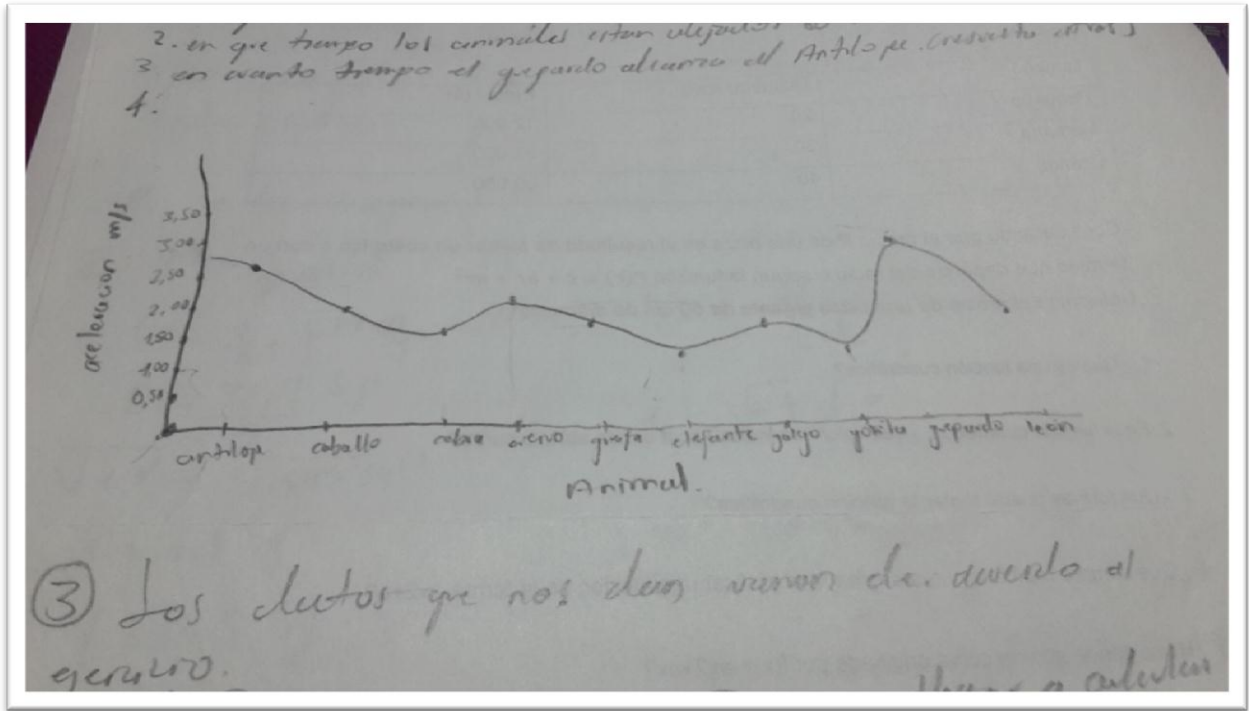 2. en que tiempo los animales estan alejados
3 en cuanto tiempo el guepardo alcanza el Antilope (
4.
aceleracion m/s
3,50
3,00
2,50
2,00
1,50
1,00
0,50
antilope caballo cebra ciervo girafa elefante galgo guepardo león
Animal.
③ Los datos que nos dan varian de. acuerdo al
a calcular